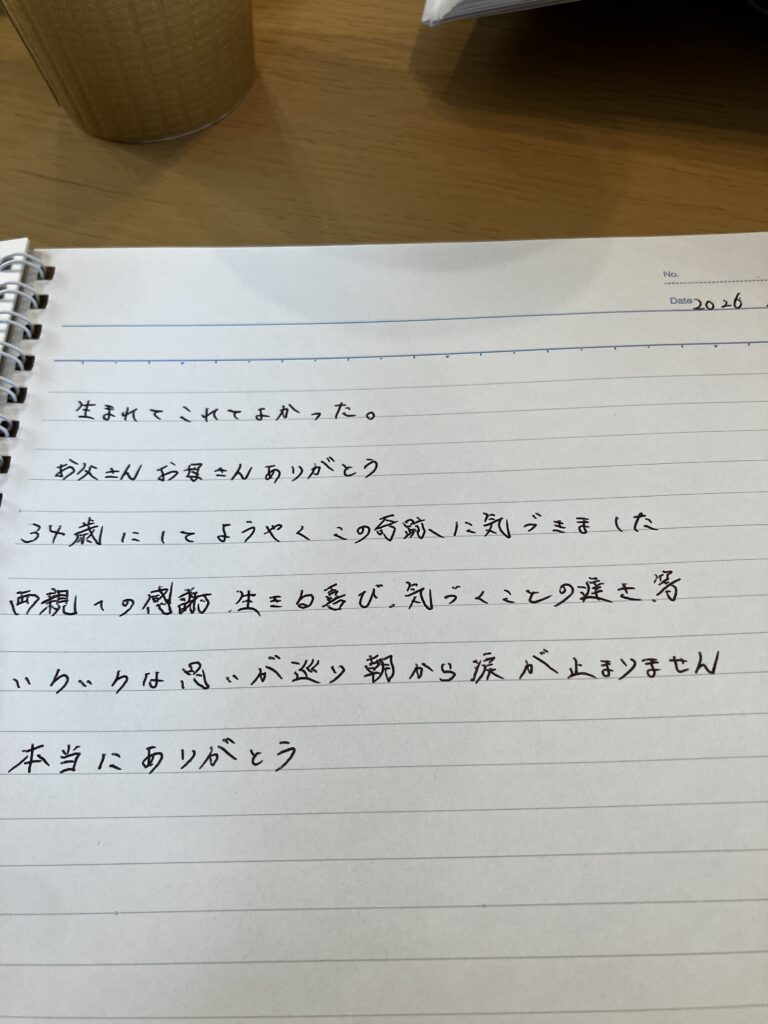 No.
Date 2026
生まれてこれてよかった。
お父さん お母さん ありがとう
34歳にしてようやく この奇跡に気づきました
両親への感謝、生きる喜び、気づくことの遅さ、等
いくつは思いが巡り 朝から涙が止まりません
本当にありがとう